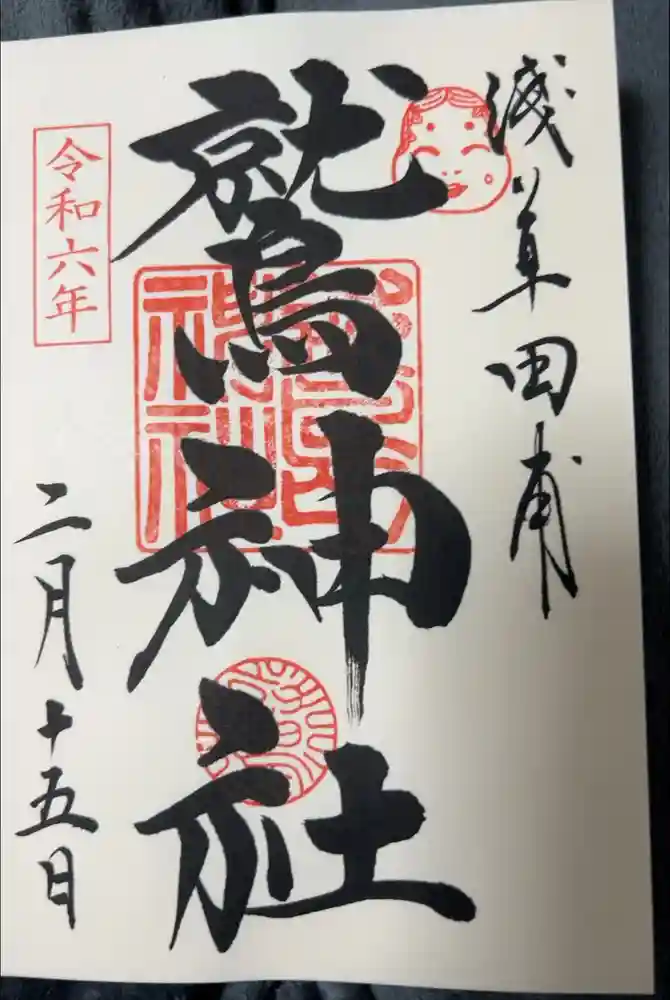 淺草田甫
鷲神社
令和六年
二月十五日